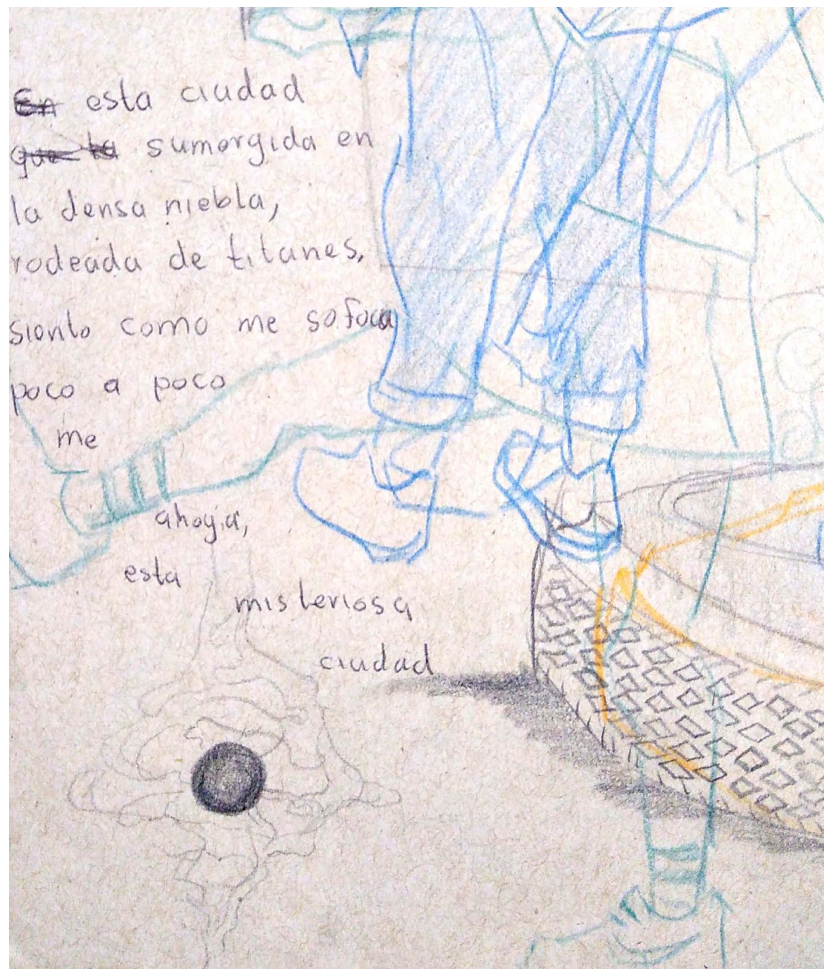 En esta ciudad
que la sumergida en
la densa niebla,
rodeada de titanes,
siento como me sofoca
poco a poco
me
ahoga,
esta
misteriosa
ciudad